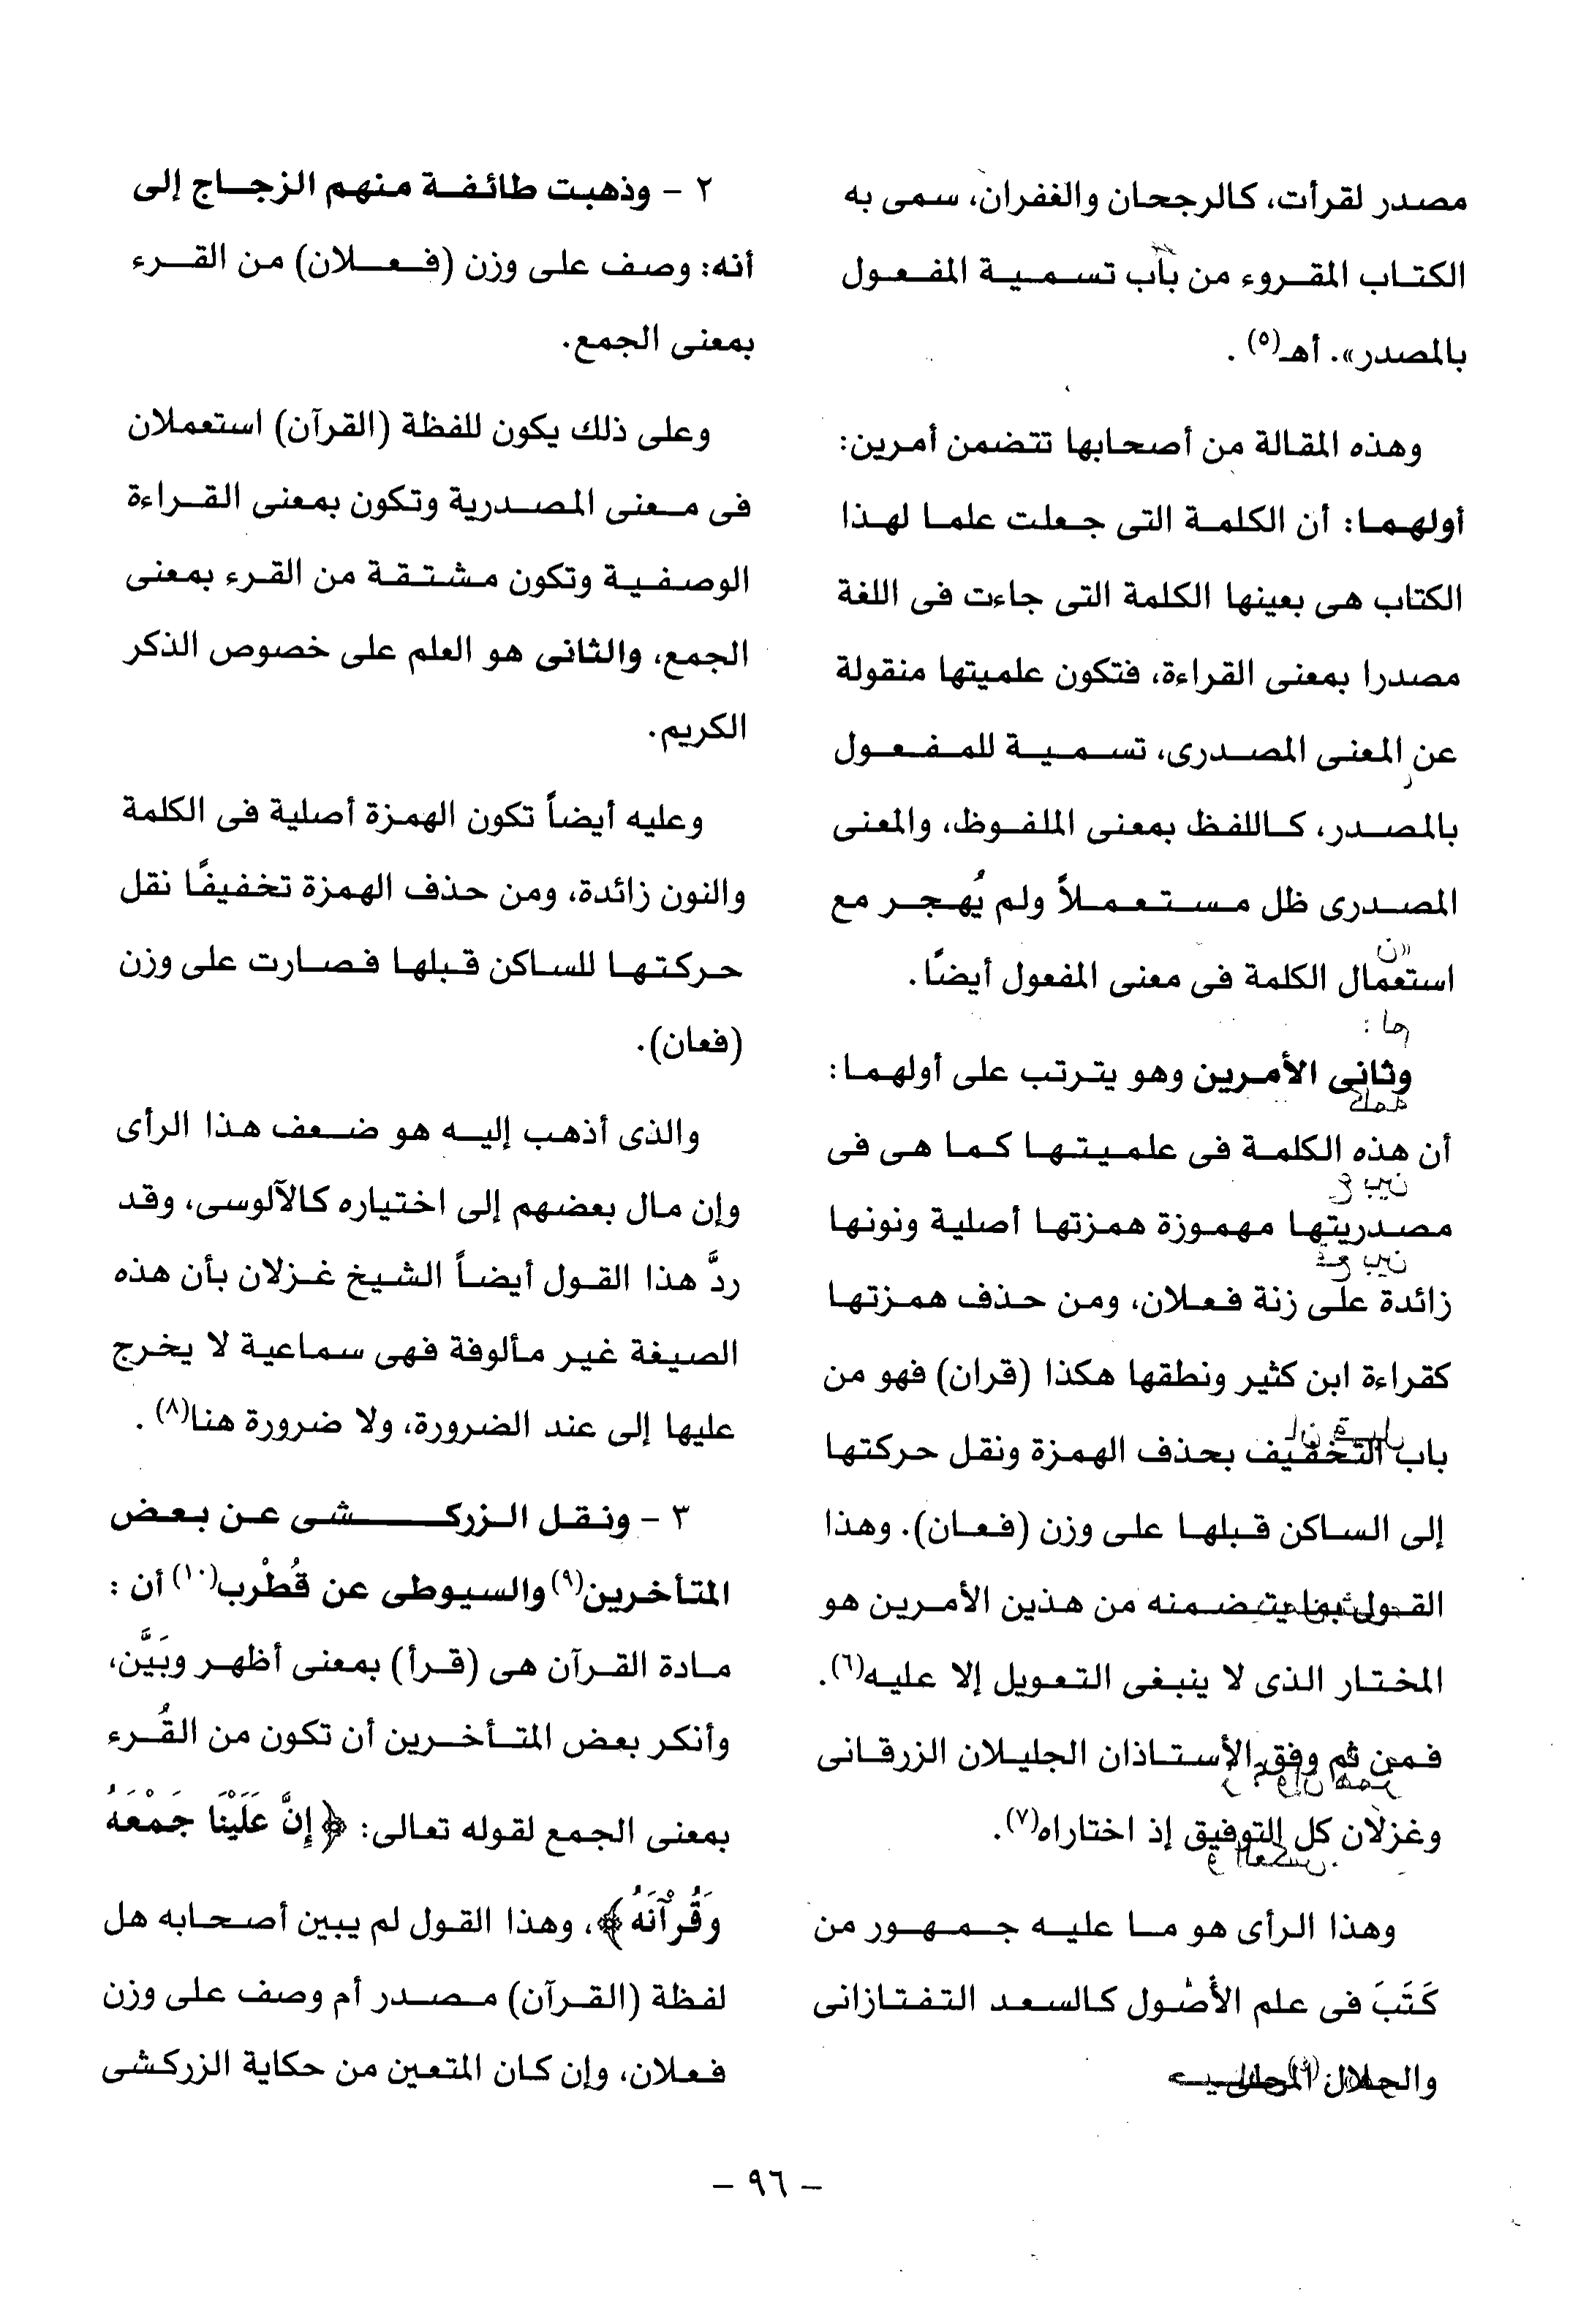 مصدر لقرأت، كالرجحان والغفران، سمى به
الكتاب المقروء من باب تسمية المفعول
بالمصدر». أهـ(٥) .
وهذه المقالة من أصحابها تتضمن أمرين:
أولهما: أن الكلمة التى جعلت علما لهذا
الكتاب هى بعينها الكلمة التى جاءت فى اللغة
مصدرا بمعنى القراءة، فتكون علميتها منقولة
عن المعنى المصدرى، تسمية للمفعول
بالمصدر، كاللفظ بمعنى الملفوظ، والمعنى
المصدرى ظل مستعملاً ولم يُهجر مع
استعمال الكلمة فى معنى المفعول أيضًا.
وثانى الأمرين وهو يترتب على أولهما:
أن هذه الكلمة فى علميتها كما هى فى
مصدريتها مهموزة همزتها أصلية ونونها
زائدة على زنة فعلان، ومن حذف همزتها
كقراءة ابن كثير ونطقها هكذا (قران) فهو من
باب التخفيف بحذف الهمزة ونقل حركتها
إلى الساكن قبلها على وزن (فعان). وهذا
القول بما يتضمنه من هذين الأمرين هو
المختار الذى لا ينبغى التعويل إلا عليه(٦).
فمن ثم وفق الأستاذان الجليلان الزرقانى
وغزلان كل التوفيق إذ اختاراه(٧).
وهذا الرأى هو ما عليه جمهور من
كَتَبَ فى علم الأُصول كالسعد التفتازانى
والجلال المحلى
٢ - وذهبت طائفة منهم الزجاج إلى
أنه: وصف على وزن (فعلان) من القرء
بمعنى الجمع.
وعلى ذلك يكون للفظة (القرآن) استعملان
فى معنى المصدرية وتكون بمعنى القراءة
الوصفية وتكون مشتقة من القرء بمعنى
الجمع، والثانى هو العلم على خصوص الذكر
الكريم.
وعليه أيضاً تكون الهمزة أصلية فى الكلمة
والنون زائدة، ومن حذف الهمزة تخفيفًا نقل
حركتها للساكن قبلها فصارت على وزن
(فعان).
والذى أذهب إليه هو ضعف هذا الرأى
وإن مال بعضهم إلى اختياره كالآلوسى، وقد
ردَّ هذا القول أيضاً الشيخ غزلان بأن هذه
الصيغة غير مألوفة فهى سماعية لا يخرج
عليها إلى عند الضرورة، ولا ضرورة هنا(٨) .
٣ - ونقل الزركشى عن بعض
المتأخرين(٩) والسيوطى عن قُطْرب(١٠) أن :
مادة القرآن هى (قرأ) بمعنى أظهر وبَيَّن،
وأنكر بعض المتأخرين أن تكون من القُرء
بمعنى الجمع لقوله تعالى: ﴿إِنَّ عَلَيْنَا جَمْعَهُ
وَقُرْآنَهُ﴾، وهذا القول لم يبين أصحابه هل
لفظة (القرآن) مصدر أم وصف على وزن
فعلان، وإن كان المتعين من حكاية الزركشى
- ٩٦ -